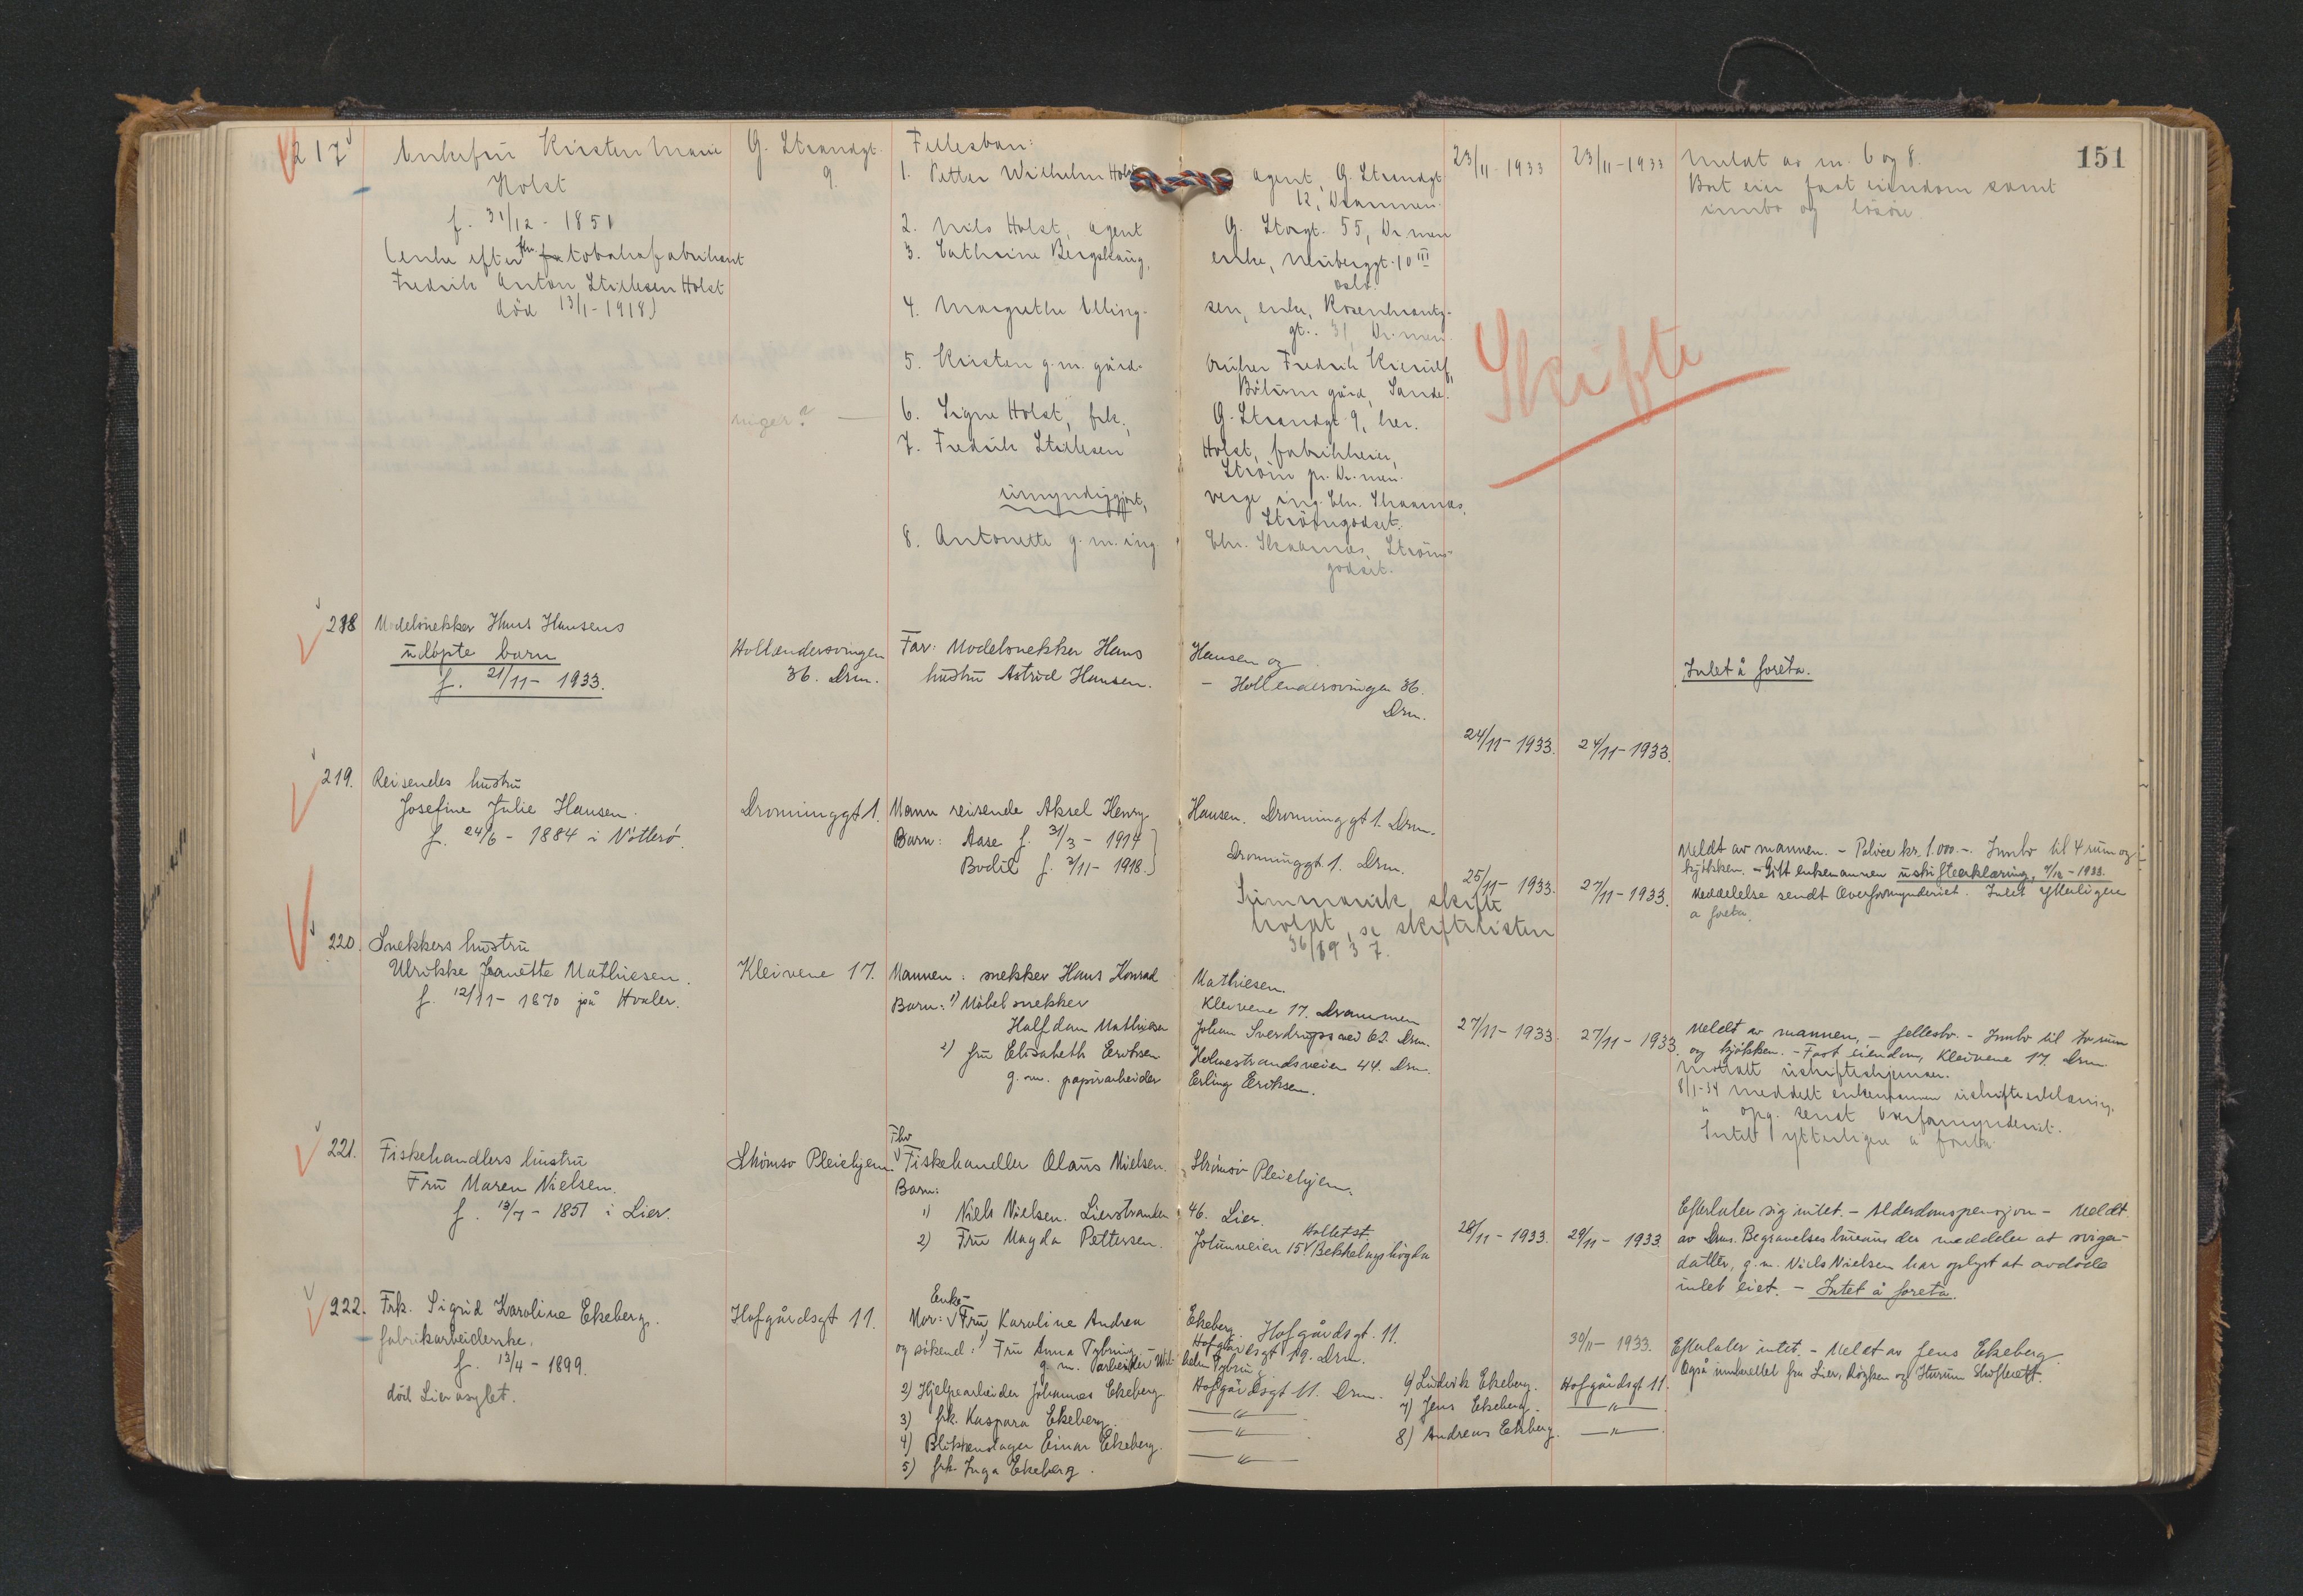 151
217 Enkefru Kirsten Marie
Holst
f. 31/12 - 1851
(enke efter fhv. tobaksfabrikant
Fredrik Anton Stillesen Holst
död 13/1-1918)
G. Strandgt.
9.
Fellesbarn:
1. Petter Wilhelm Holst agent, G. Strandgt.
12, Drammen.
2. Nils Holst, agent G. Storgt. 55, Dr.men
3. Cathrine Bergskaug, enke, Neuberggt. 10 III
Oslo.
4. Margrethe Ulling- sen, enke, Rosenkrantz-
gt. 31, Dr.men.
5. Kirsten g.m. gård- bruker Fredrik Kierulf,
gård, Sande.
6. Signe Holst, frk., G. Strandgt 9, her.
7. Fredrik Stillesen Holst, fabrikkeier,
Ström pr. Dr.men.
umyndiggjort, verge ing. Chr.
Strömgodset.
8. Antonette g.m. ing. Chr. Ströms-
godset.
23/11-1933 23/11-1933
Meldt av nr. 6 og 8.
Boet eier fast eiendom samt
innbo og lösöre.
Skifte
218 Modelsnekker Hans Hansens
udöpte barn
f. 21/11 - 1933.
Hollendersvingen
36. Drm.
Far: Modelsnekker Hans Hansen og
hustru Astrid Hansen. - Hollendersvingen 36.
Drm.
24/11-1933. 24/11-1933.
Intet å foreta.
219. Reisendes hustru
Josefine Julie Hansen.
f. 24/6 - 1884 i Nötterö.
Dronninggt 1.
Mann reisende Aksel Henry Hansen. Dronninggt 1. Drm.
Barn: Aase f. 31/3 - 1914
Bodil f. 2/11 - 1918. Dronninggt. 1. Drm.
25/11-1933. 27/11-1933.
Meldt av mannen. - Police kr. 1.000.-. Innbo til 4 rum og
kjökken. - Gitt enkemannen uskifteerklæring, /12 - 1933.
Meddelelse sendt Overformynderiet. Intet ytterligere
å foreta.
Summarisk skifte
holdt, se skiftelisten
36/1937.
220. Snekkers hustru
Ulrikke Jeanette Mathiesen.
f. 12/11 - 1870 på Hvaler.
Kleivene 17.
Mannen: snekker Hans Konrad Mathiesen.
Kleivene 17. Drammen
Barn: 1) Möbelsnekker
Halfdan Mathiesen Johan Sverdrups vei 62. Drm.
2) fru Elisabeth Eriksen Holmestrandsveien 44. Drm.
g.m. papirarbeider Erling Eriksen.
27/11-1933. 27/11-1933.
Meldt av mannen, - fellesbo. - Innbo til to rum
og kjökken. - Fast eiendom, Kleivene 17. Drm.
Mottatt uskifteskjema.
8/1-34 meddelt enkemannen uskifteerklæring.
" opg. sendt Overformynderiet.
Intet ytterligere å foreta.
221. Fiskehandlers hustru
Fru Maren Nielsen.
f. 13/7 - 1851 i Lier.
Strömsö Pleiehjem.
Fhv.
Fiskehandler Olaus Nielsen. Strömsö Pleiehjem.
Barn:
1) Niels Nielsen. Lierstranden 46. Lier.
2) Fru Magda Pettersen. Jotunveien 15 Holtet st. Bekkelagshögda
28/11-1933. 29/11-1933.
Efterlater sig intet. - Alderdomspensjon - Meldt
av Drms. Begravelsesbureau der meddeler at sviger-
datter, g.m. Niels Nielsen har oplyst at avdöde
intet eiet. - Intet å foreta.
222. Frk. Sigrid Karoline Ekeberg.
fabrikarbeiderske.
f. 13/4 - 1899.
död Lier asylet.
Hofgårdsgt 11.
Enke-
Mor: Fru Karoline Andrea Ekeberg. Hofgårdsgt. 11.
og söskend: 1) Fru Anna Tybring Hofgårdsgt 19. Drm.
g.m. arbeider Wil- helm Tybring
2) Hjelpearbeider Johannes Ekeberg Hofgårdsgt 11. Drm.
3) frk. Kaspara Ekeberg. —"—
4) Blikkenslager Einar Ekeberg. —"—
5) frk. Inga Ekeberg. —"—
6) Ludvik Ekeberg. Hofgårdsgt 11.
7) Jens Ekeberg. —"—
8) Andreas Ekeberg. —"—
30/11-1933.
Efterlater intet. - Meldt av Jens Ekeberg.
Også innberettet fra Lier, Röyken og Hurum Skifterett.